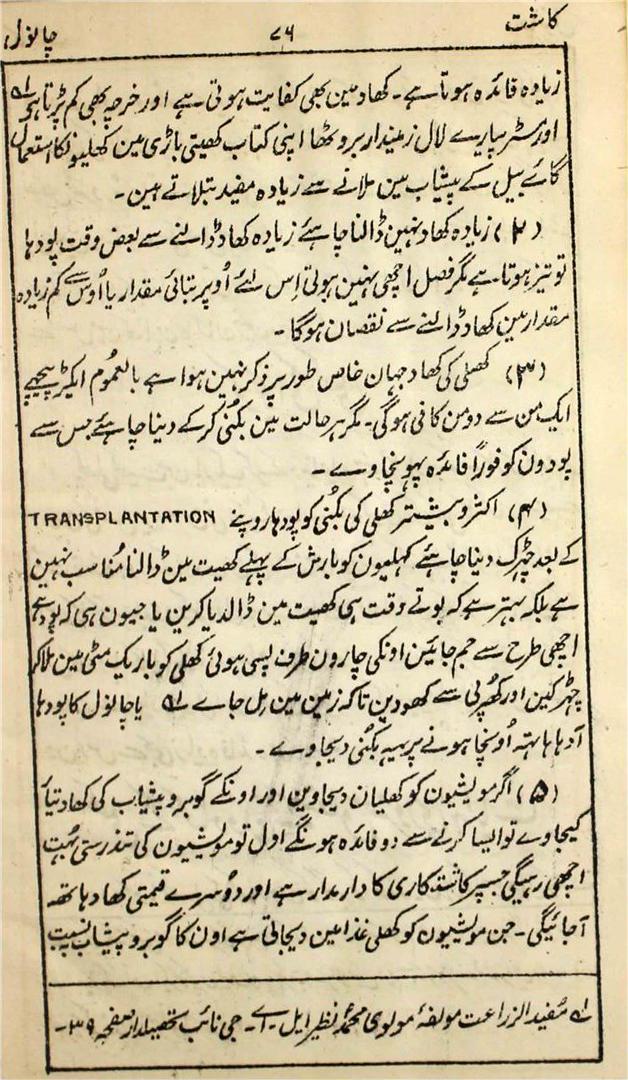 کاشت ۷۶ چانول
زیادہ فائدہ ہوتا ہے۔ کھاد مین بھی کفایت ہوتی ہے اور خرچہ بھی کم پڑتا ہی لہ
اور مسٹر پیارے لال زمیندار بروٹھا اپنی کتاب کھیتی باڑی مین کھلیونکا استعمال
گائے بیل کے پیشاب مین ملانے سے زیادہ مفید بتلاتے ہین۔
(۲) زیادہ کھاد نہین ڈالنا چاہئے زیادہ کھاد ڈالنے سے بعض وقت پودہا
تو تیز ہوتا ہے مگر فصل اچھی نہین ہوتی اِس لئے اُوپر بتائی مقدار یا اُوس سے کم زیادہ
مقدار مین کھاد ڈالنے سے نقصان ہوگا۔
(۳) کھلی کی کھاد جہان خاص طور پر ذکر نہین ہوا ہے بالعموُم ایکڑ پیچھے
ایک من سے دو من کافی ہوگی۔ مگر ہر حالت مین بکنُی کرکے دینا چاہئے جس سے
پودون کو فوراً فائدہ پہونچاوے۔
(۴) اکثر و بیشتر کھلی کی بکنُی کو پودہا روپنے TRANSPLANTATION
کے بعد چڑک دینا چاہئے کھلیون کو بارش کے پہلے کھیت مین ڈالنا مُناسب نہین
ہے بلکہ بہتر ہے کہ بوتے وقت ہی کھیت مین ڈالدیا کرین یا جیون ہی کہ پودہے
اچھی طرح سے جم جائین اونکی چارون طرف پسی ہوئی کھلی کو باریک مٹی مین ملاکر
چھڑکین اور کھُرپی سے کھودین تاکہ زمین مین مِل جاے لہ یا چانوُل کا پودہا
آدہا ہاتہہ اُونچا ہونے پر یہہ بکنُی دیجاوے۔
(۵) اگر مویشیون کو کھلیان دیجاوین اور اونکے گوبر و پیشاب کی کھاد تیار
کیجاوے تو ایسا کرنے سے دو فائدہ ہونگے اول تو مویشیون کی تندرستی بہُت
اچھی رہیگی جسپر کاشتکاری کا دار مدار ہے اور دوُسرے قیمتی کھاد ہاتھہ
آجائیگی۔ جن مویشیون کو کھلی غذا مین دیجاتی ہے اون کا گوبر و پیشاب بہ نسبت
لہ مُفید الزراعت مولفۂ مولوی محمدُ نظیر ایل۔ اے۔ جی نائب تحصیلدار صفحہ ۳۹۔